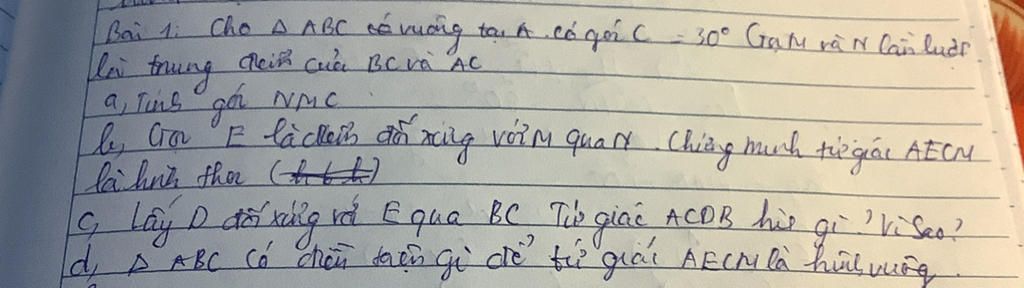 Bài 1: Cho Δ ABC có vuông tại A có góc C = 30° Gọi M và N lần lượt
là trung điểm của BC và AC
a, Tính góc NMC
b, Gọi E là điểm đối xứng với M qua N. Chứng minh tứ giác AECM
là hình thoi
c, Lấy D đối xứng với E qua BC Tứ giác ACDB hìn gì? Vì Sao?
d, Δ ABC có điều kiện gì để tứ giác AECM là hình vuông.